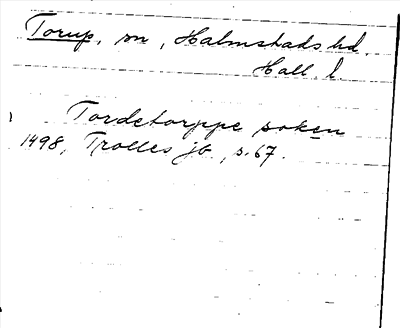 Torup, sn, Halmstads hd.
Hall. l.
Tordetorppe soken
1498, Trolles jb, s. 67.